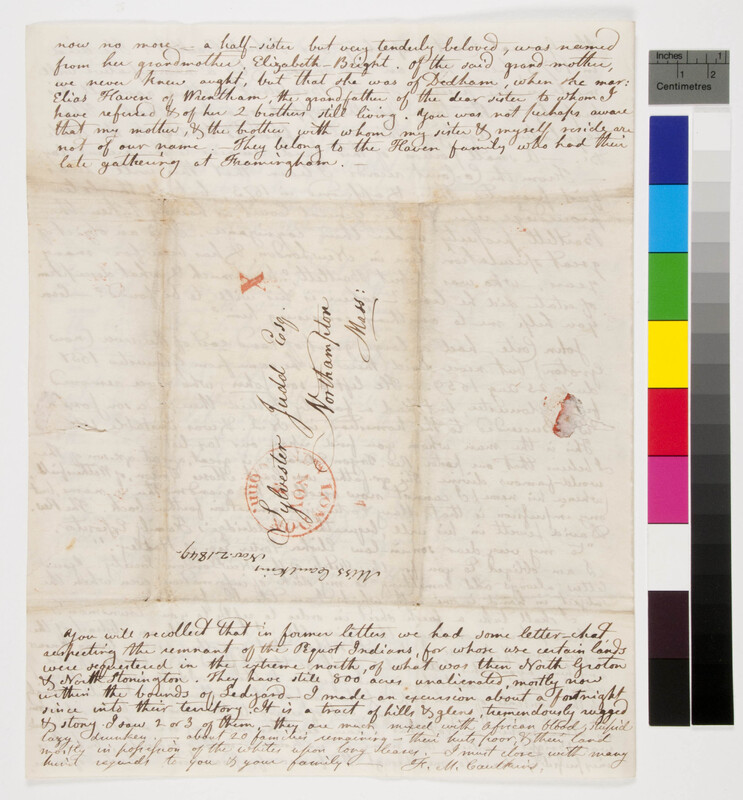 now no more – a half-sister but very tenderly beloved, was named
from her grandmother, Elizabeth Bright. of the said grandmother,
we never knew aught, but that she was of Dedham, when she mar:
Elias Haven of Wrentham, the grandfather of the dear sister to whom I
have referred & of her 2 brothers still living. You was not perhaps aware
that my mother, & the brother with whom my sister & myself reside, are
not of our name. – They belong to the Haven family who had their
late gathering at Framingham. –
X
Sylvester Judd Esq.
Northampton
Mass:
NOV
CONN.
Miss Caulkins
Nov. 2. 1849.
You will recollect that in former letters we had some letter-chat,
respecting the remnant of the Pequot Indians, for whose use certain lands
were sequestered in the extreme north, of what was then North Groton
& North Stonington. They have still 800 acres, unalienated, mostly now
within the bounds of Ledyard – I made an excursion about a fortnight
since into their territory. It is a tract of hills & glens, tremendously rugged
& stony. I saw 2 or 3 of them, – they are much mixed with African blood, stupid
lazy drunken. – about 20 families remaining – their huts, poor, & their land
mostly in possession of the whites upon long leases. – I must close with many
kind regards to you & your family – F. M. Caulkins.
Inches
1
2
Centimetres